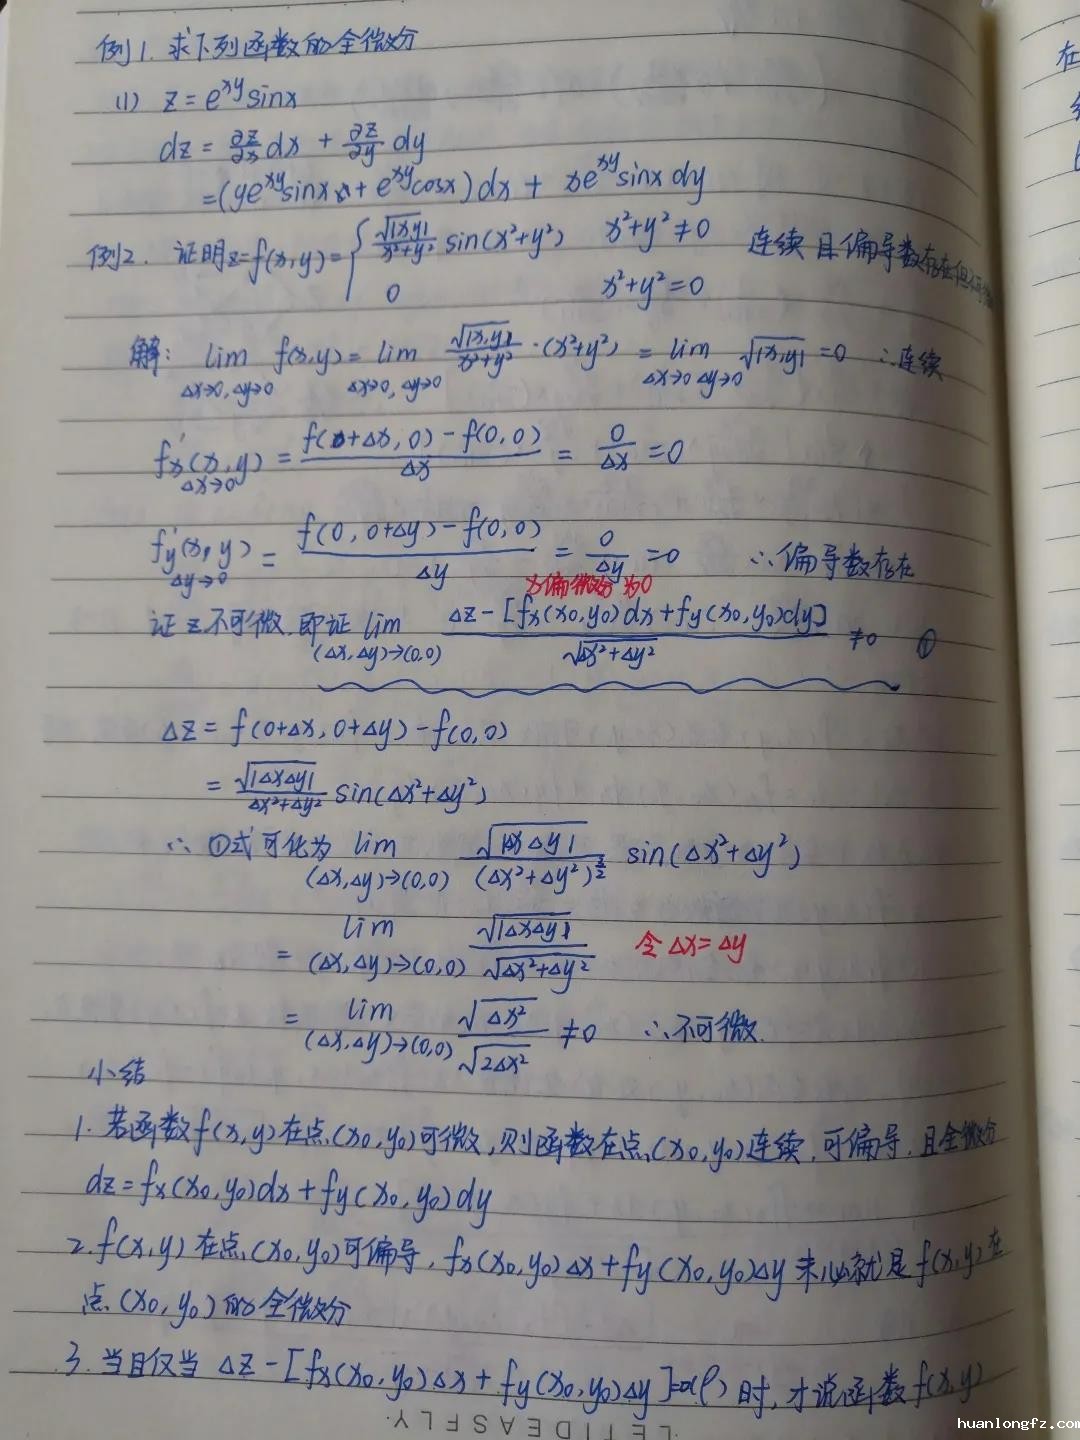 例1. 求下列函数的全微分
(1) z = e^{xy} sinx
dz = ∂z/∂x dx + ∂z/∂y dy
= (ye^{xy}sinx + e^{xy}cosx) dx + xe^{xy} sinx dy
例2. 证明z=f(x,y)= { √|xy| / (x²+y²) sin(x²+y²) x²+y²≠0 连续且偏导数存在但不可微
0 x²+y²=0
解: lim_{Δx→0, Δy→0} f(x,y) = lim_{Δx→0, Δy→0} √|x,y| / (x²+y²) · (x²+y²) = lim_{Δx→0 Δy→0} √|x,y| = 0 ∴连续
fx'(x,y)_{Δx→0} = [f(0+Δx, 0) - f(0, 0)] / Δx = 0/Δx = 0
fy'(x,y)_{Δy→0} = [f(0, 0+Δy) - f(0, 0)] / Δy = 0/Δy = 0 ∴偏导数存在
偏微分为0
证z不可微. 即证 lim_{(Δx,Δy)→(0,0)} {Δz - [fx(x0,y0)dx + fy(x0,y0)dy]} / √(Δx²+Δy²) ≠0 ①
Δz = f(0+Δx, 0+Δy) - f(0,0)
= √|ΔxΔy| / (Δx²+Δy²) sin(Δx²+Δy²)
∴ ①式可化为 lim_{(Δx,Δy)→(0,0)} √|ΔxΔy| / (Δx²+Δy²)^{3/2} sin(Δx²+Δy²)
= lim_{(Δx,Δy)→(0,0)} √|ΔxΔy| / √(Δx²+Δy²) 令Δx=Δy
= lim_{(Δx,Δy)→(0,0)} √(Δx²) / √(2Δx²) ≠0 ∴不可微.
小结
1. 若函数f(x,y)在点(x0,y0)可微,则函数在点(x0,y0)连续,可偏导,且全微分
dz = fx(x0,y0)dx + fy(x0,y0)dy
2. f(x,y)在点(x0,y0)可偏导,fx(x0,y0)Δx + fy(x0,y0)Δy 未必就是f(x,y)在
点(x0,y0)的全微分
3. 当且仅当 Δz - [fx(x0,y0)Δx + fy(x0,y0)Δy] = o(ρ)时,才说函数f(x,y)
LETIDEASFLY
在
huanlongfz.com